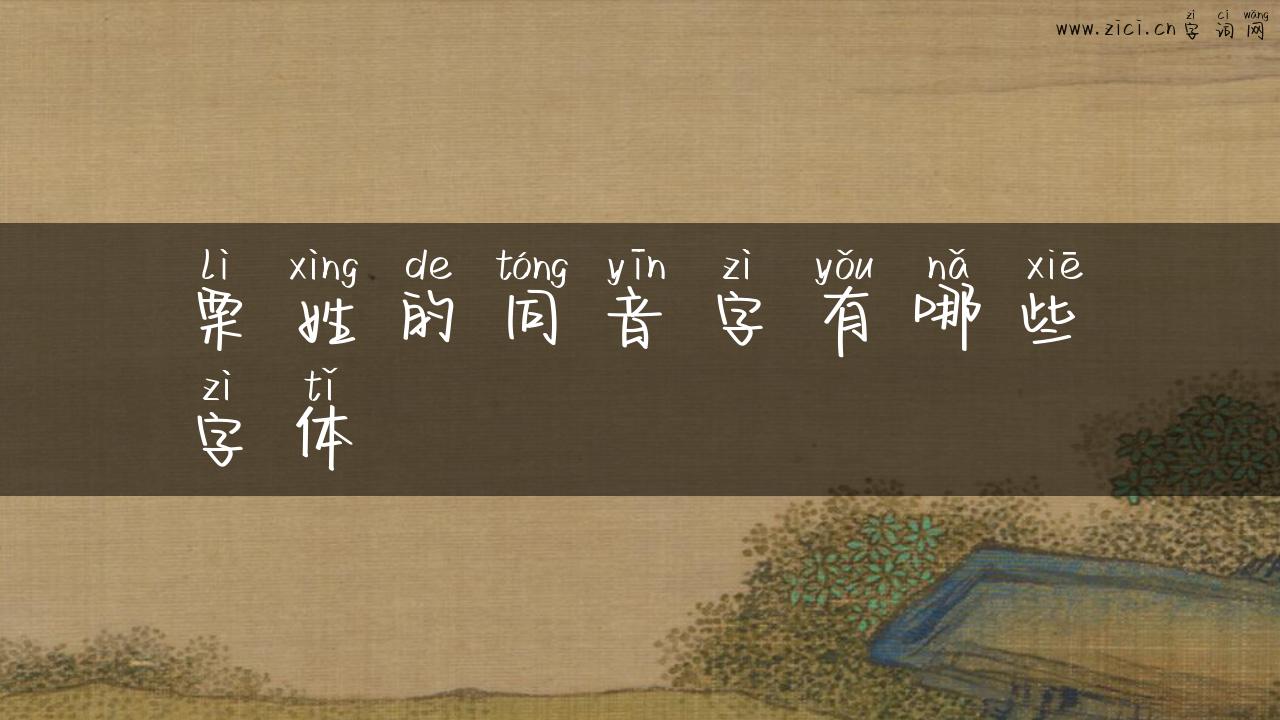 zì cí wǎng
www.zici.cn字词网
lì xìng de tóng yīn zì yǒu nǎ xiē
栗姓的同音字有哪些
zì tǐ
字体